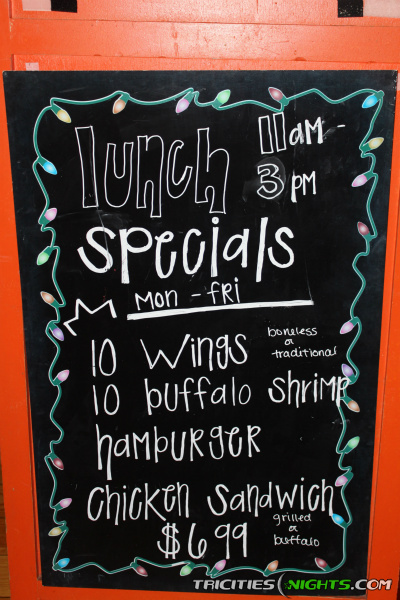 lunch 11am -
3 pm
specials
Mon - Fri
10 Wings boneless
or
traditional
10 buffalo shrimp
hamburger
chicken sandwich
grilled
or
buffalo
$6.99
TRICITIESNIGHTS.COM